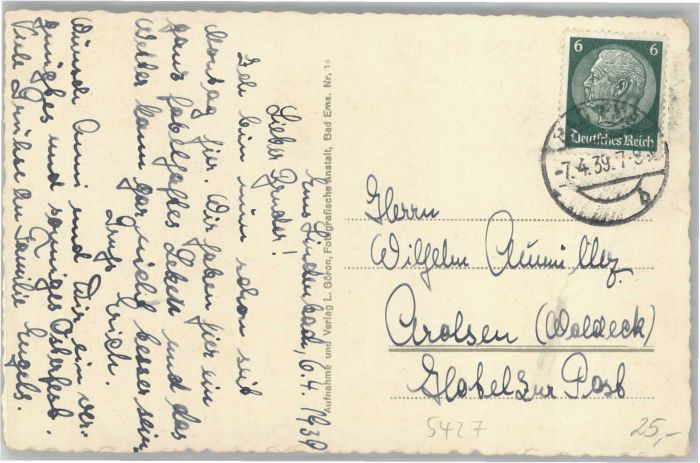 Ems Lindenbad, 6.4.1939
Lieber Bruder!
Ich bin nun schon seit
Montag hier. Wir haben hier ein
ganz fabelhaftes Leben und das
Wetter kann gar nicht besser sein.
Erich.
Wünsch Anni und Dir ein ver-
gnügtes und sonniges Osterfest.
Viele Grüße an Familie Engels.
Aufnahme und Verlag L. Göron, Fotografische Anstalt, Bad Ems. Nr. 14
6 6
Deutsches Reich
-7.4.39.7-8
b
Herrn
Wilhelm
Arolsen (Waldeck)
Hotel zur Post
5427
25,-